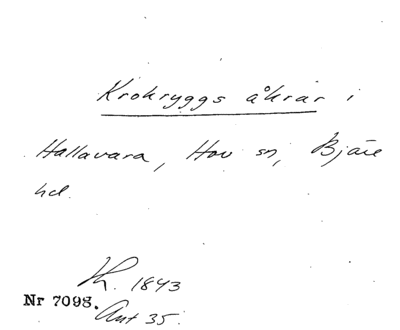 Krokryggs åkrar i
Hallavara, Hov sn, Bjäre
hd.
K. 1843
Nr 7098.
Ant 35.